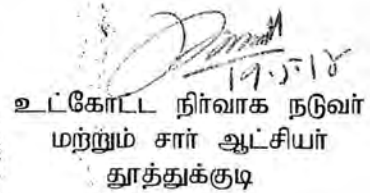 19.5.18
உட்கோட்ட நிர்வாக நடுவர்
மற்றும் சார் ஆட்சியர்
தூத்துக்குடி